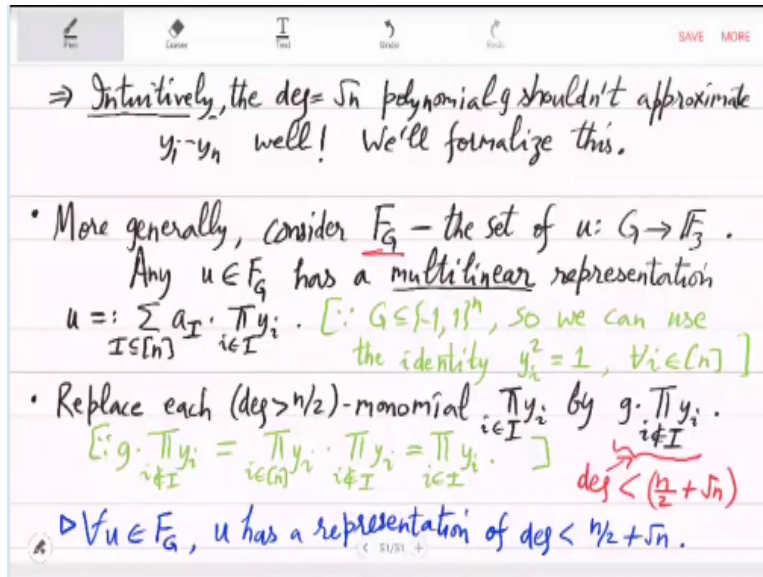 Pen Eraser Text Undo Redo SAVE MORE
⇒ Intuitively, the deg=√n polynomial g shouldn't approximate
y₁⋯yₙ well! We'll formalize this.
• More generally, consider F_G – the set of u: G→𝔽₃.
Any u∈F_G has a multilinear representation
u =: ∑_{I⊆[n]} a_I · ∏_{i∈I} yᵢ. [∵ G⊆{-1,1}ⁿ, so we can use
the identity yᵢ²=1, ∀i∈[n] ]
• Replace each (deg>n/2)-monomial ∏_{i∈I} yᵢ by g·∏_{i∉I} yᵢ.
[∵ g·∏_{i∉I} yᵢ = ∏_{i∈[n]} yᵢ · ∏_{i∉I} yᵢ = ∏_{i∈I} yᵢ. ]
deg < (n/2 + √n)
▷ ∀u∈F_G, u has a representation of deg < n/2+√n.
< 51/51 +